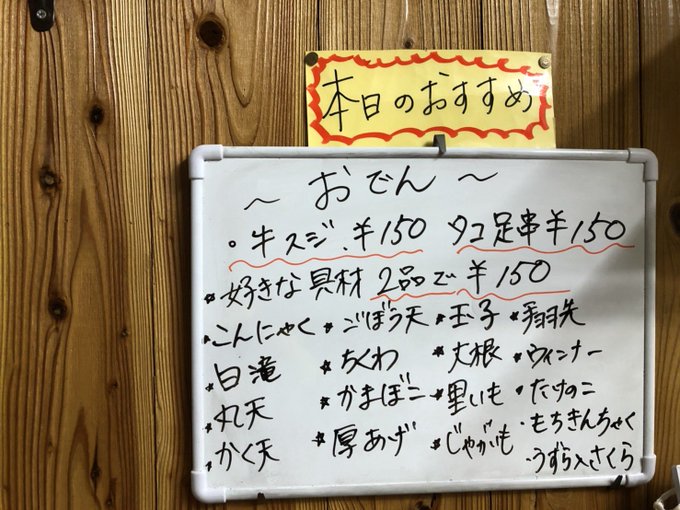 本日のおすすめ
～ おでん ～
・牛スジ.¥150 タコ足串¥150
*好きな具材 2品で¥150
こんにゃく *ごぼう天 *玉子 *手羽先
白滝 *ちくわ *大根 *ウィンナー
丸天 *かまぼこ *里いも ・たけのこ
かく天 *厚あげ *じゃがいも ・もちきんちゃく
・うずら入さくら